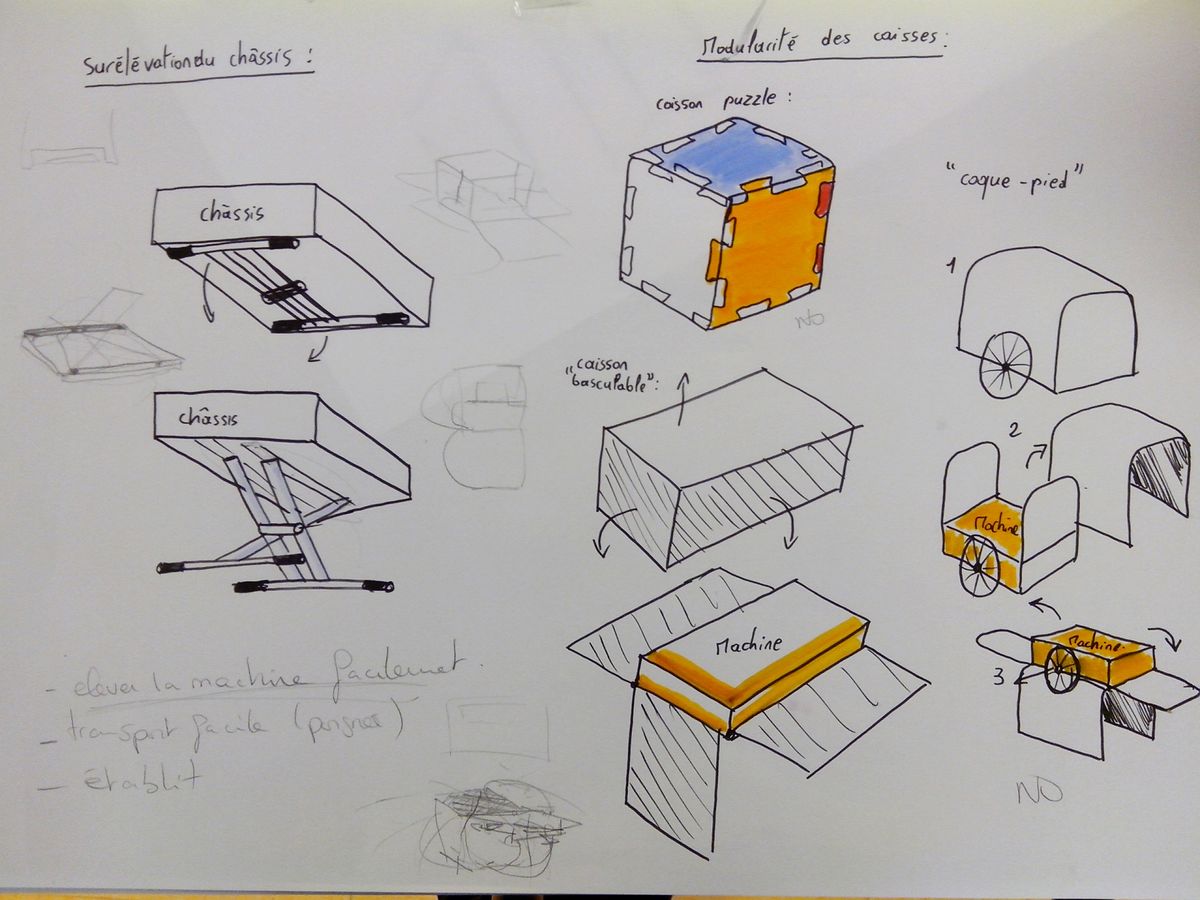 Surélévation du châssis :
châssis
châssis
- elever la machine facilemet.
- transport facile (poignee)
- établit
Modularité des caisses :
caisson puzzle :
NO
"caisson
basculable" :
Machine
"coque-pied"
1
2
Machine
3
Machine
NO